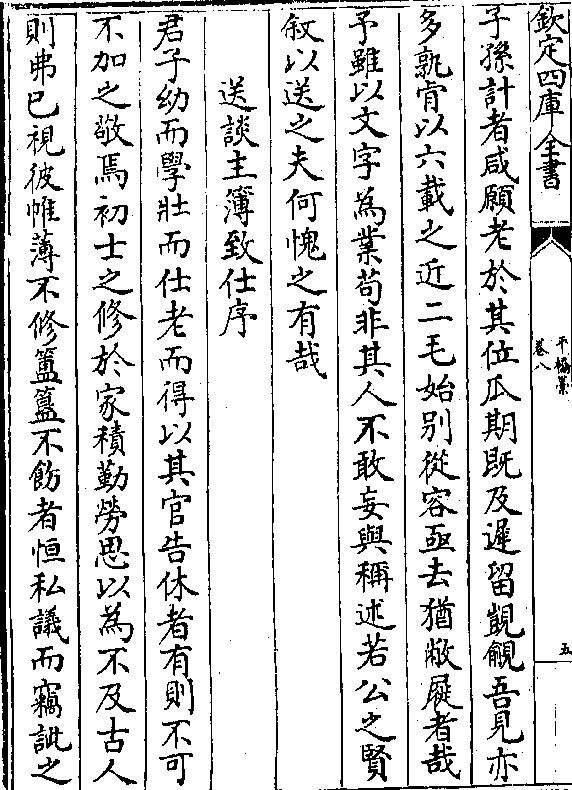 欽定四庫全書
平橋藁
卷八
五
子孫計者咸願老於其位瓜期既及遲留覬覦吾見亦
多孰肯以六載之近二毛始别從容亟去猶敝屣者哉
予雖以文字為業苟非其人不敢妄與稱述若公之賢
敘以送之夫何愧之有哉
送談主簿致仕序
君子幼而學壯而仕老而得以其官告休者有則不可
不加之敬焉初士之修於家積勤勞思以為不及古人
則弗已視彼帷薄不修簠簋不飭者恒私議而竊訿之